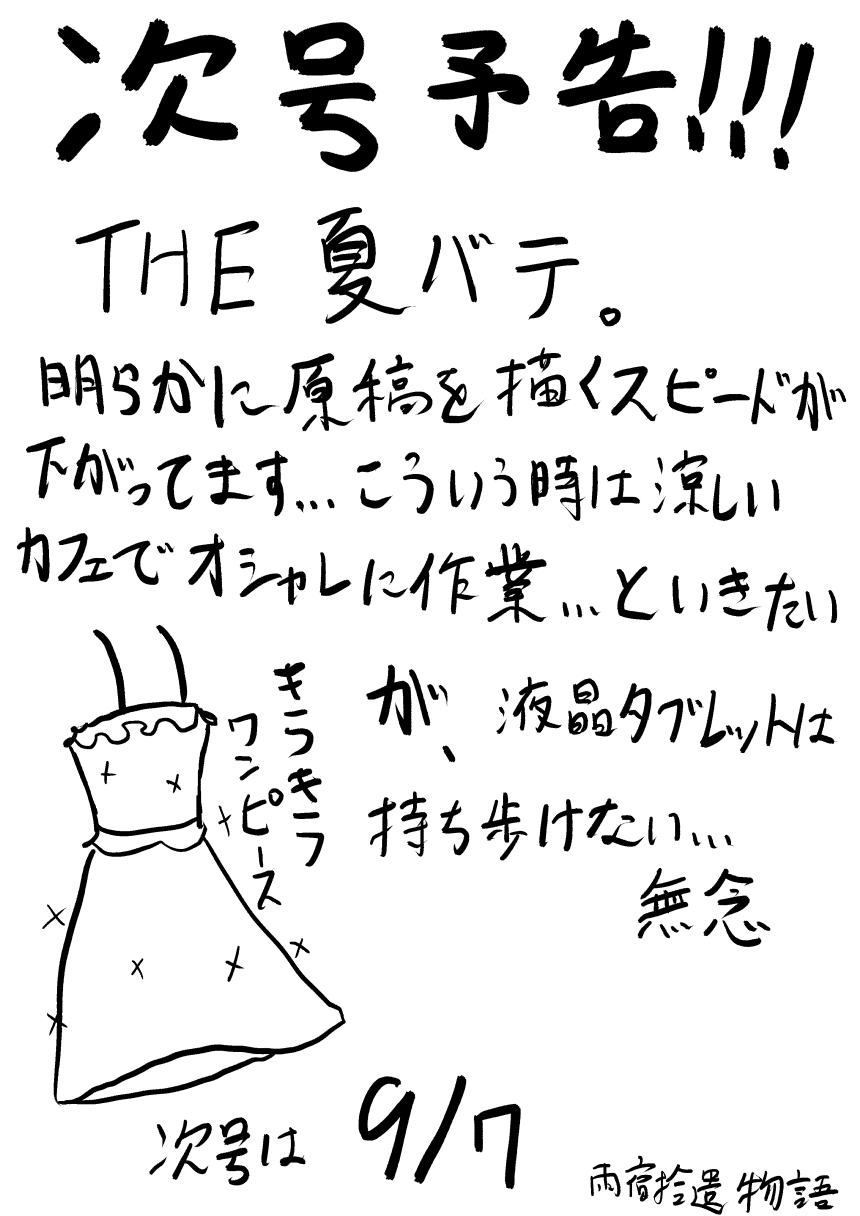 次号予告!!!
THE 夏バテ。
明らかに原稿を描くスピードが
下がってます...こういう時は涼しい
カフェでオシャレに作業...といきたい
が、液晶タブレットは
持ち歩けない...
無念
キラキラ
ワンピース
次号は 9/7
雨宿拾遺物語